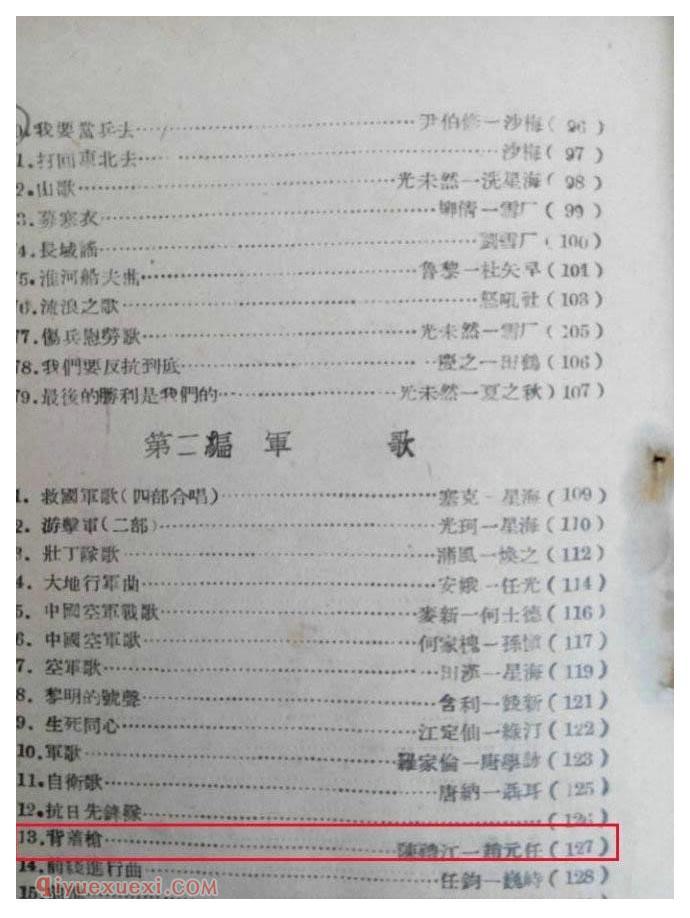 0.我要當兵去……尹伯修—沙梅(96)
1.打回東北去……沙梅(97)
2.山歌……光未然—洗星海(98)
3.募寒衣……柳倩—雪厂(99)
4.長城謠……劉雪厂(100)
75.淮河船夫曲……魯黎—杜矢甲(101)
76.流浪之歌……怒吼社(103)
77.傷兵慰勞歌……光未然—雪厂(105)
78.我們要反抗到底……慶之—田鶴(106)
79.最後的勝利是我們的……光未然—夏之秋)107)
第二編 軍 歌
1.救國軍歌(四部合唱)……塞克—星海(109)
2.游擊軍(二部)……光珂—星海(110)
3.壯丁隊歌……蒲風—煥之(112)
4.大地行軍曲……安娥—任光(114)
5.中國空軍戰歌……麥新—何士德(116)
6.中國空軍歌……何家槐—孫慎(117)
7.空軍歌……田漢—星海(119)
8.黎明的號聲……舍利—錢新(121)
9.生死同心……江定仙—綠汀(122)
10.軍歌……羅家倫—唐學詠(123)
11.自衛歌……唐納—聶耳(125)
12.抗日先鋒隊……(126)
13.背着槍……陳禮江—趙元任(127)
14.前綫進行曲……任鈞—巍峙(128)
15.
qiyuexuexi.com